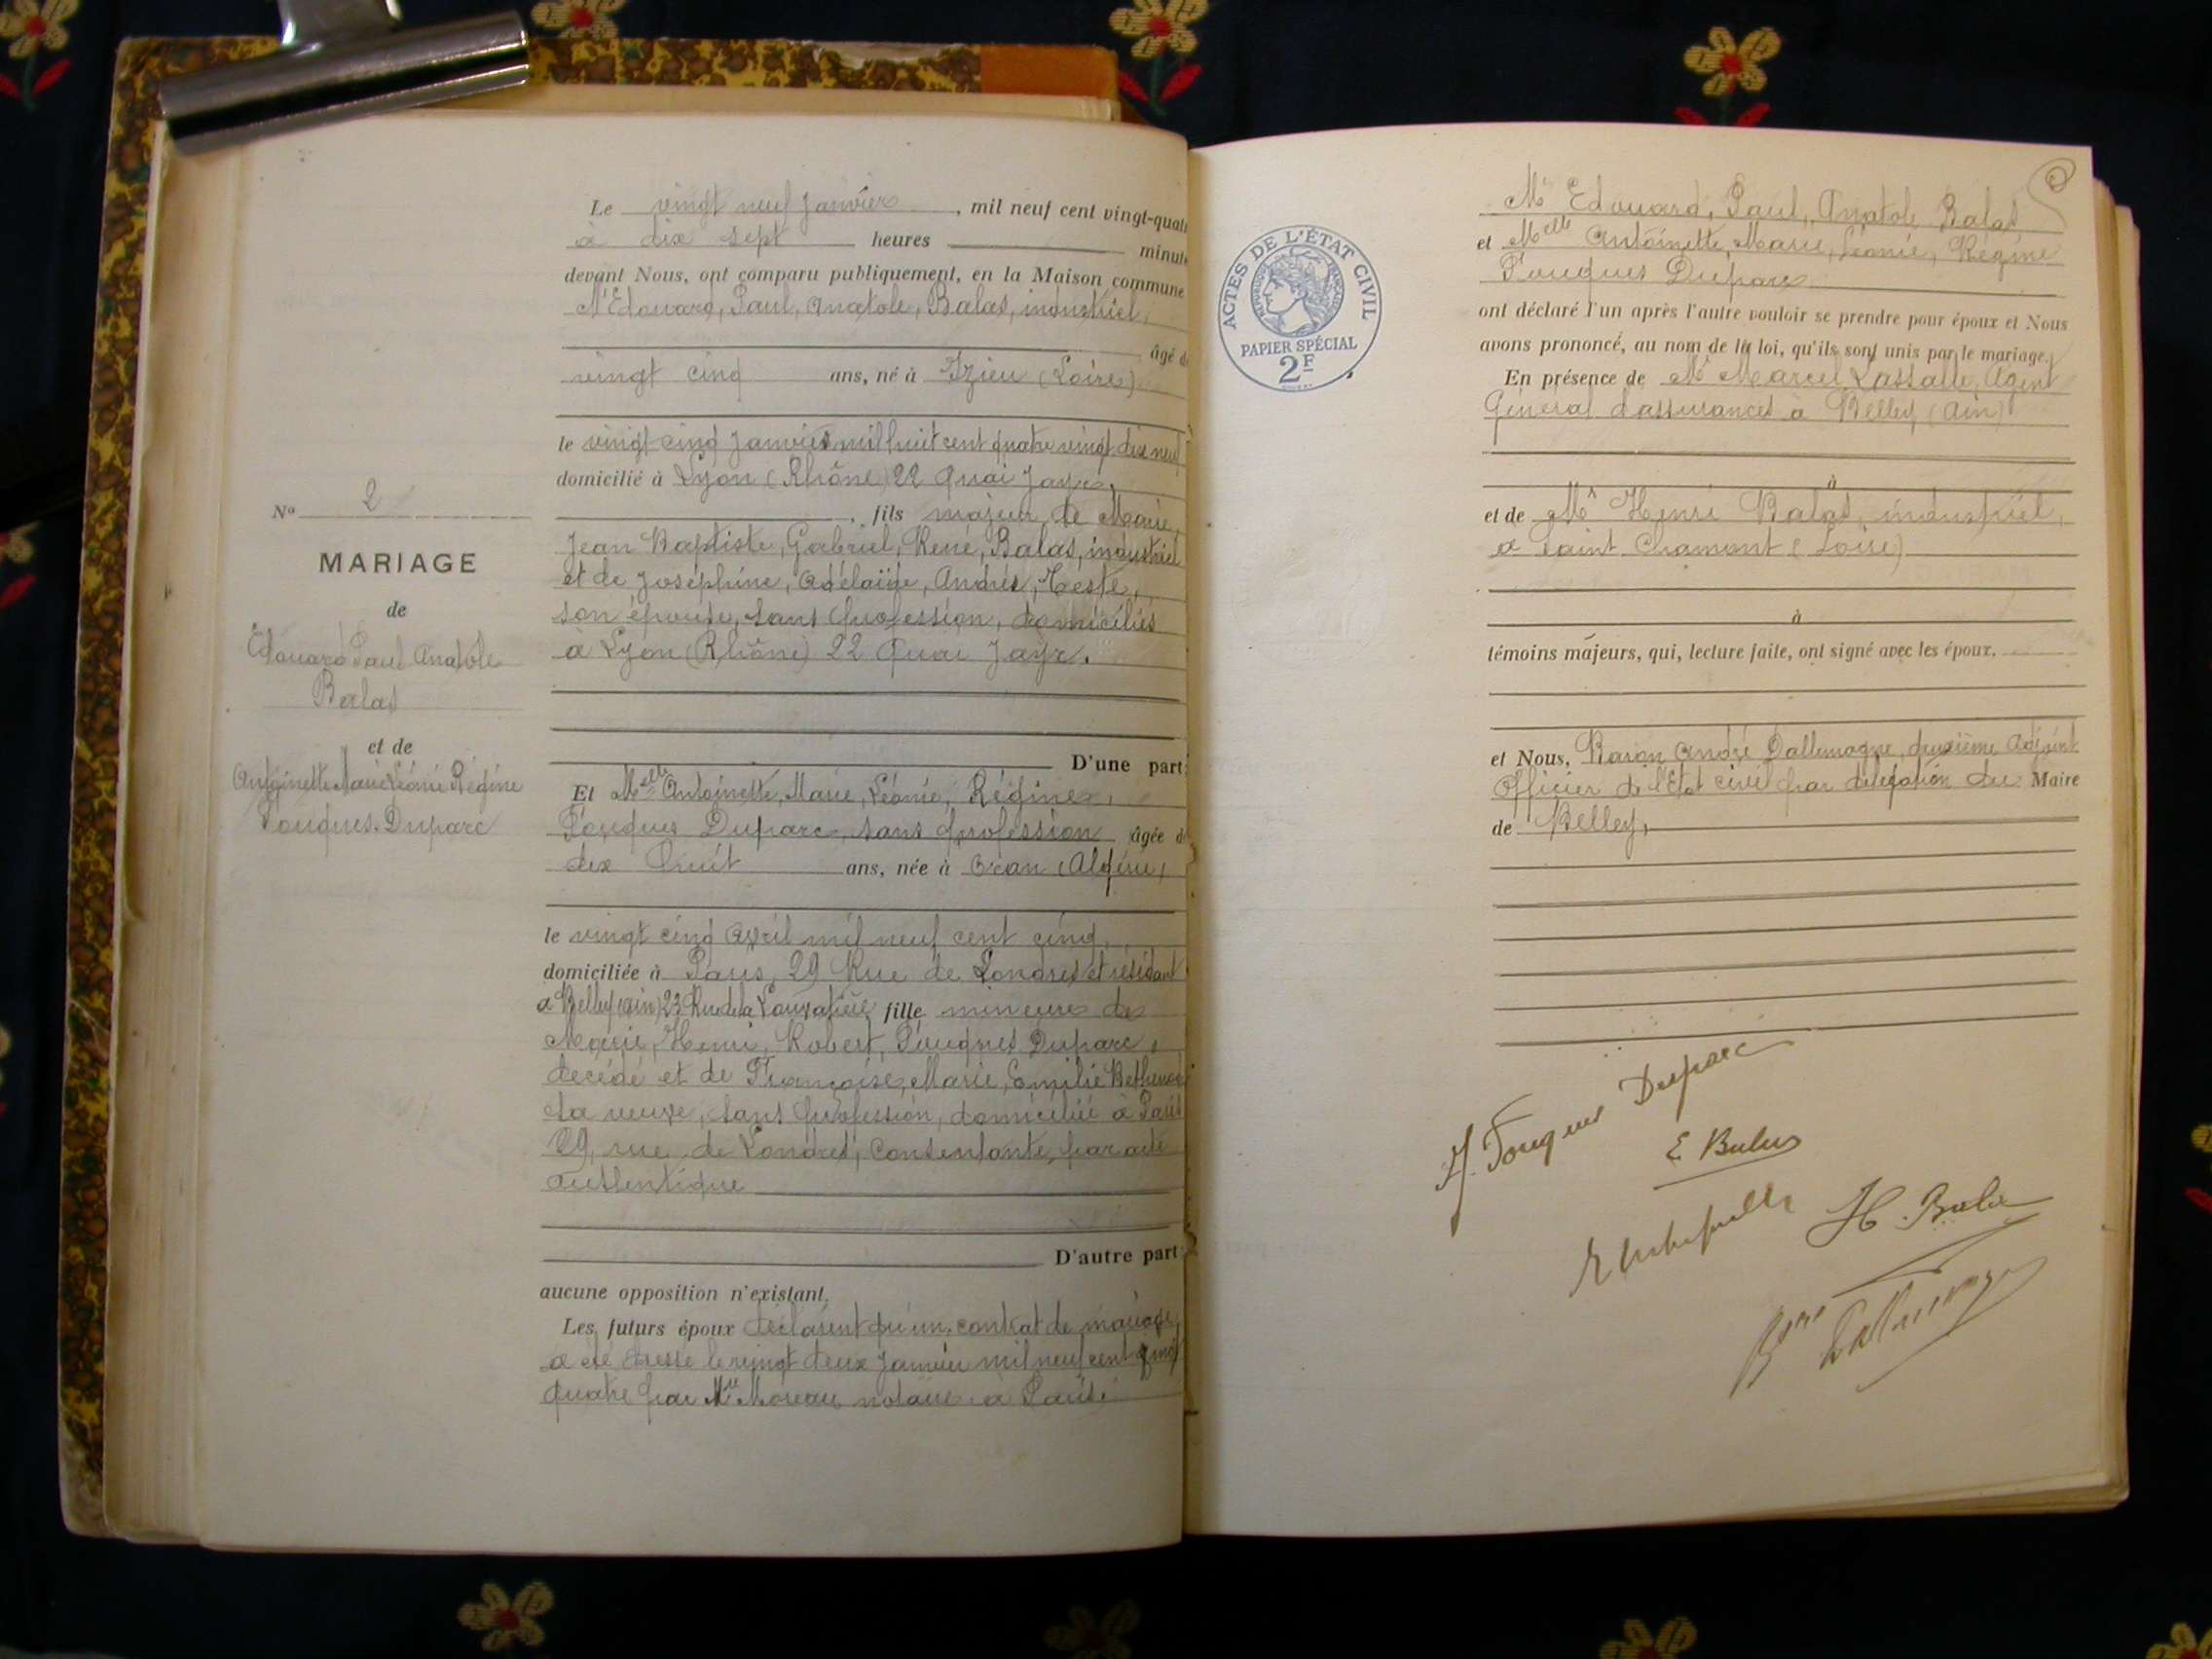 Le vingt neuf Janvier, mil neuf cent vingt-quat
à dix sept heures minut
devant Nous, ont comparu publiquement, en la Maison commune
Mr Edouard, Paul, Anatole, Balas, industriel,
âgé d
vingt cinq ans, né à Izieu (Loire)
le vingt cinq Janvier mil huit cent quatre vingt dix neuf
domicilié à Lyon (Rhône) 22 Quai Jayr,
, fils majeur de Marie,
Jean Baptiste, Gabriel, René, Balas, industriel
et de Joséphine, Adélaïde, Andrée, Neste,
son épouse, sans profession, domiciliés
à Lyon (Rhône) 22 Quai Jayr.
D'une part;
Nº 2
MARIAGE
de
Edouard Paul Anatole
Balas
et de
Antoinette Marie Léonie Régine
Fouques-Duparc
Et Melle Antoinette, Marie, Léonie, Régine,
Fouques Duparc, sans profession âgée d
dix huit ans, née à Oran (Algérie)
le vingt cinq Avril mil neuf cent cinq,
domiciliée à Paris, 29 Rue de Londres et résidant
à Belley (Ain) 23 Rue de la fille mineure de
Marie, Henri, Robert, Fouques Duparc,
décédé et de Françoise, Marie, Emilie
sa veuve, sans profession, domiciliée à Paris
29, rue de Londres, consentante par acte
authentique
D'autre part;
aucune opposition n'existant.
Les futurs époux déclarent qu'un contrat de mariage
a été dressé le vingt deux Janvier mil neuf cent vingt
quatre par Me Moreau notaire à Paris.
Mr Edouard, Paul, Anatole Balas
et Melle Antoinette, Marie, Léonie, Régine
Fouques Duparc
ont déclaré l'un après l'autre vouloir se prendre pour époux et Nous
avons prononcé, au nom de la loi, qu'ils sont unis par le mariage.
En présence de Mr Marcel Lassalle, Agent
Général d'assurances à Belley (Ain)
à
et de Mr Henri Balas, industriel,
à Saint Chamont (Loire)
à
témoins majeurs, qui, lecture faite, ont signé avec les époux.
et Nous, Baron André Dallemagne, deuxième Adjoint
Officier de l'Etat civil par délégation du Maire
de Belley,
ACTES DE L'ÉTAT CIVIL
RÉPUBLIQUE FRANÇAISE
PAPIER SPÉCIAL
2F
A. Fouques Duparc
E Balas
H. Balas
Bon Dallemagne